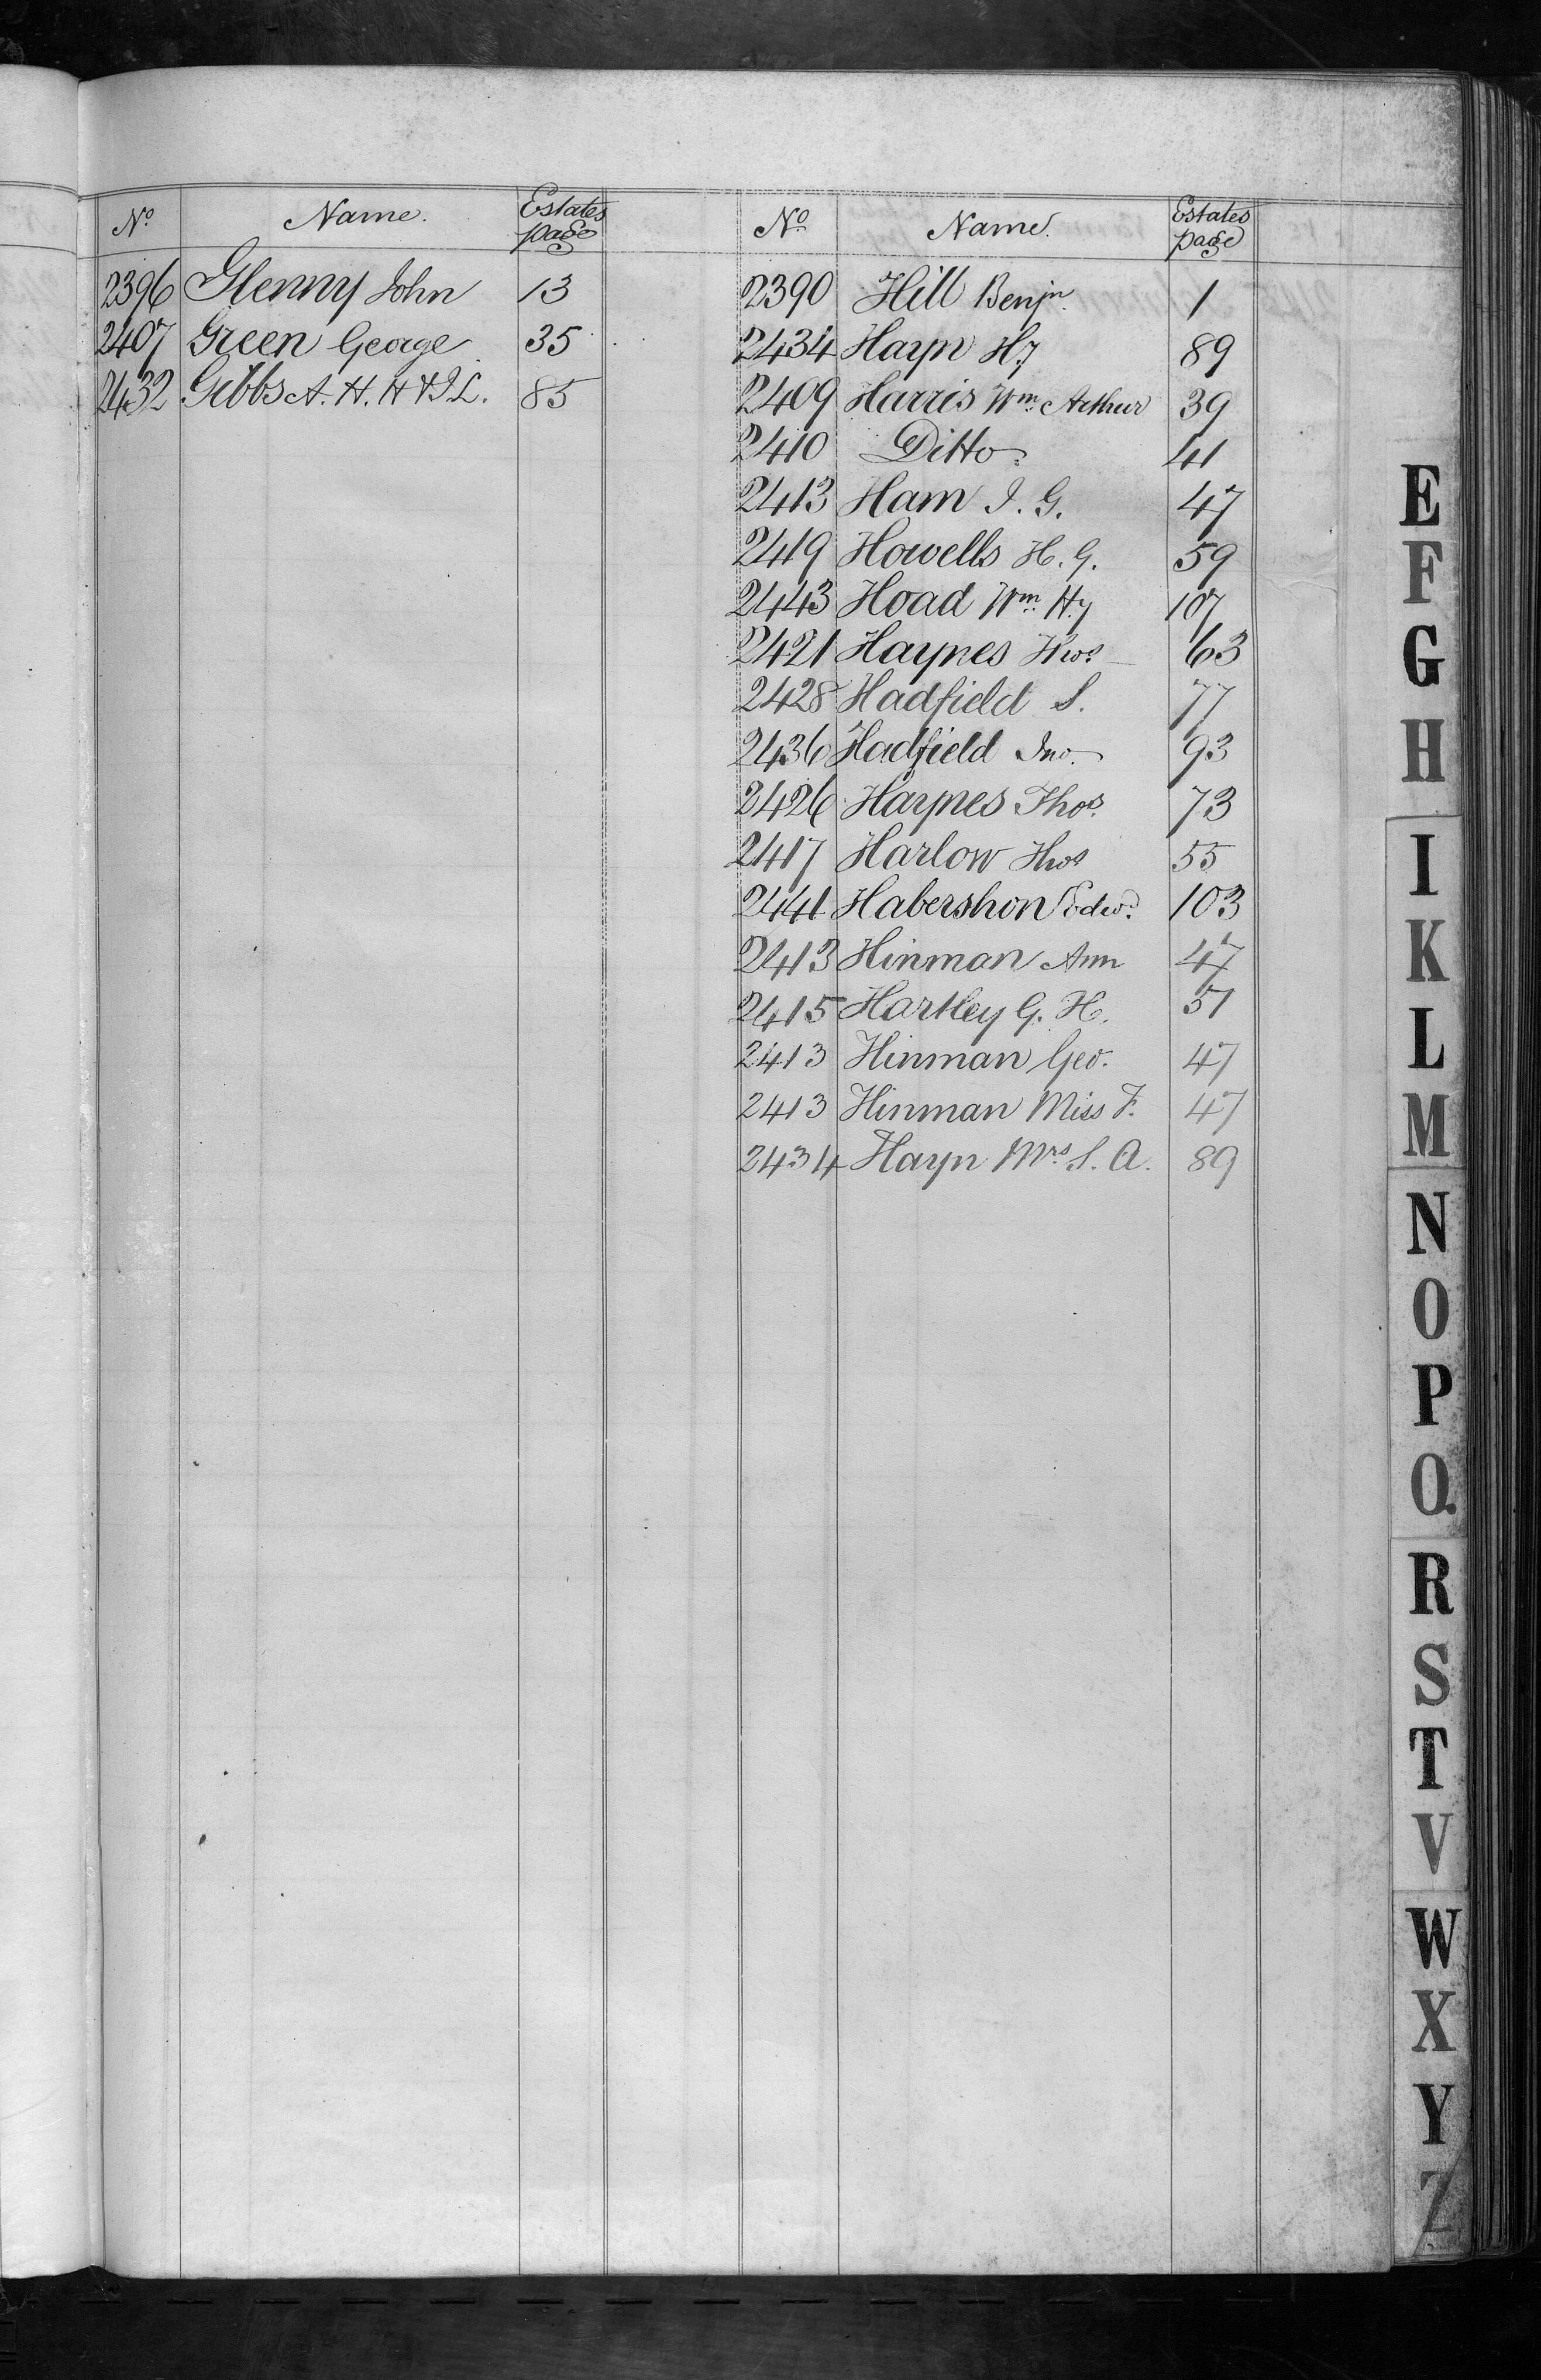 No. Name. Estates page
2396 Glenny John 13
2407 Green George 35
2432 Gibbs A. H. H & I L. 85
No. Name. Estates page
2390 Hill Benjn. 1
2434 Hayn Hy 89
2409 Harris Wm. Arthur 39
2410 Ditto 41
2413 Ham I. G. 47
2419 Howells H. G. 59
2443 Hoad Wm. Hy 107
2421 Haynes Thos. 63
2428 Hadfield S. 77
2436 Hadfield Jno. 93
2426 Haynes Thos. 73
2417 Harlow Thos 55
2441 Habershon Edwd. 103
2413 Hinman Ann 47
2415 Hartley G. H. 51
2413 Hinman Geo. 47
2413 Hinman Miss F. 47
2434 Hayn Mrs S. A. 89
E
F
G
H
I
K
L
M
N
O
P
Q.
R
S
T
V
W
X
Y
Z